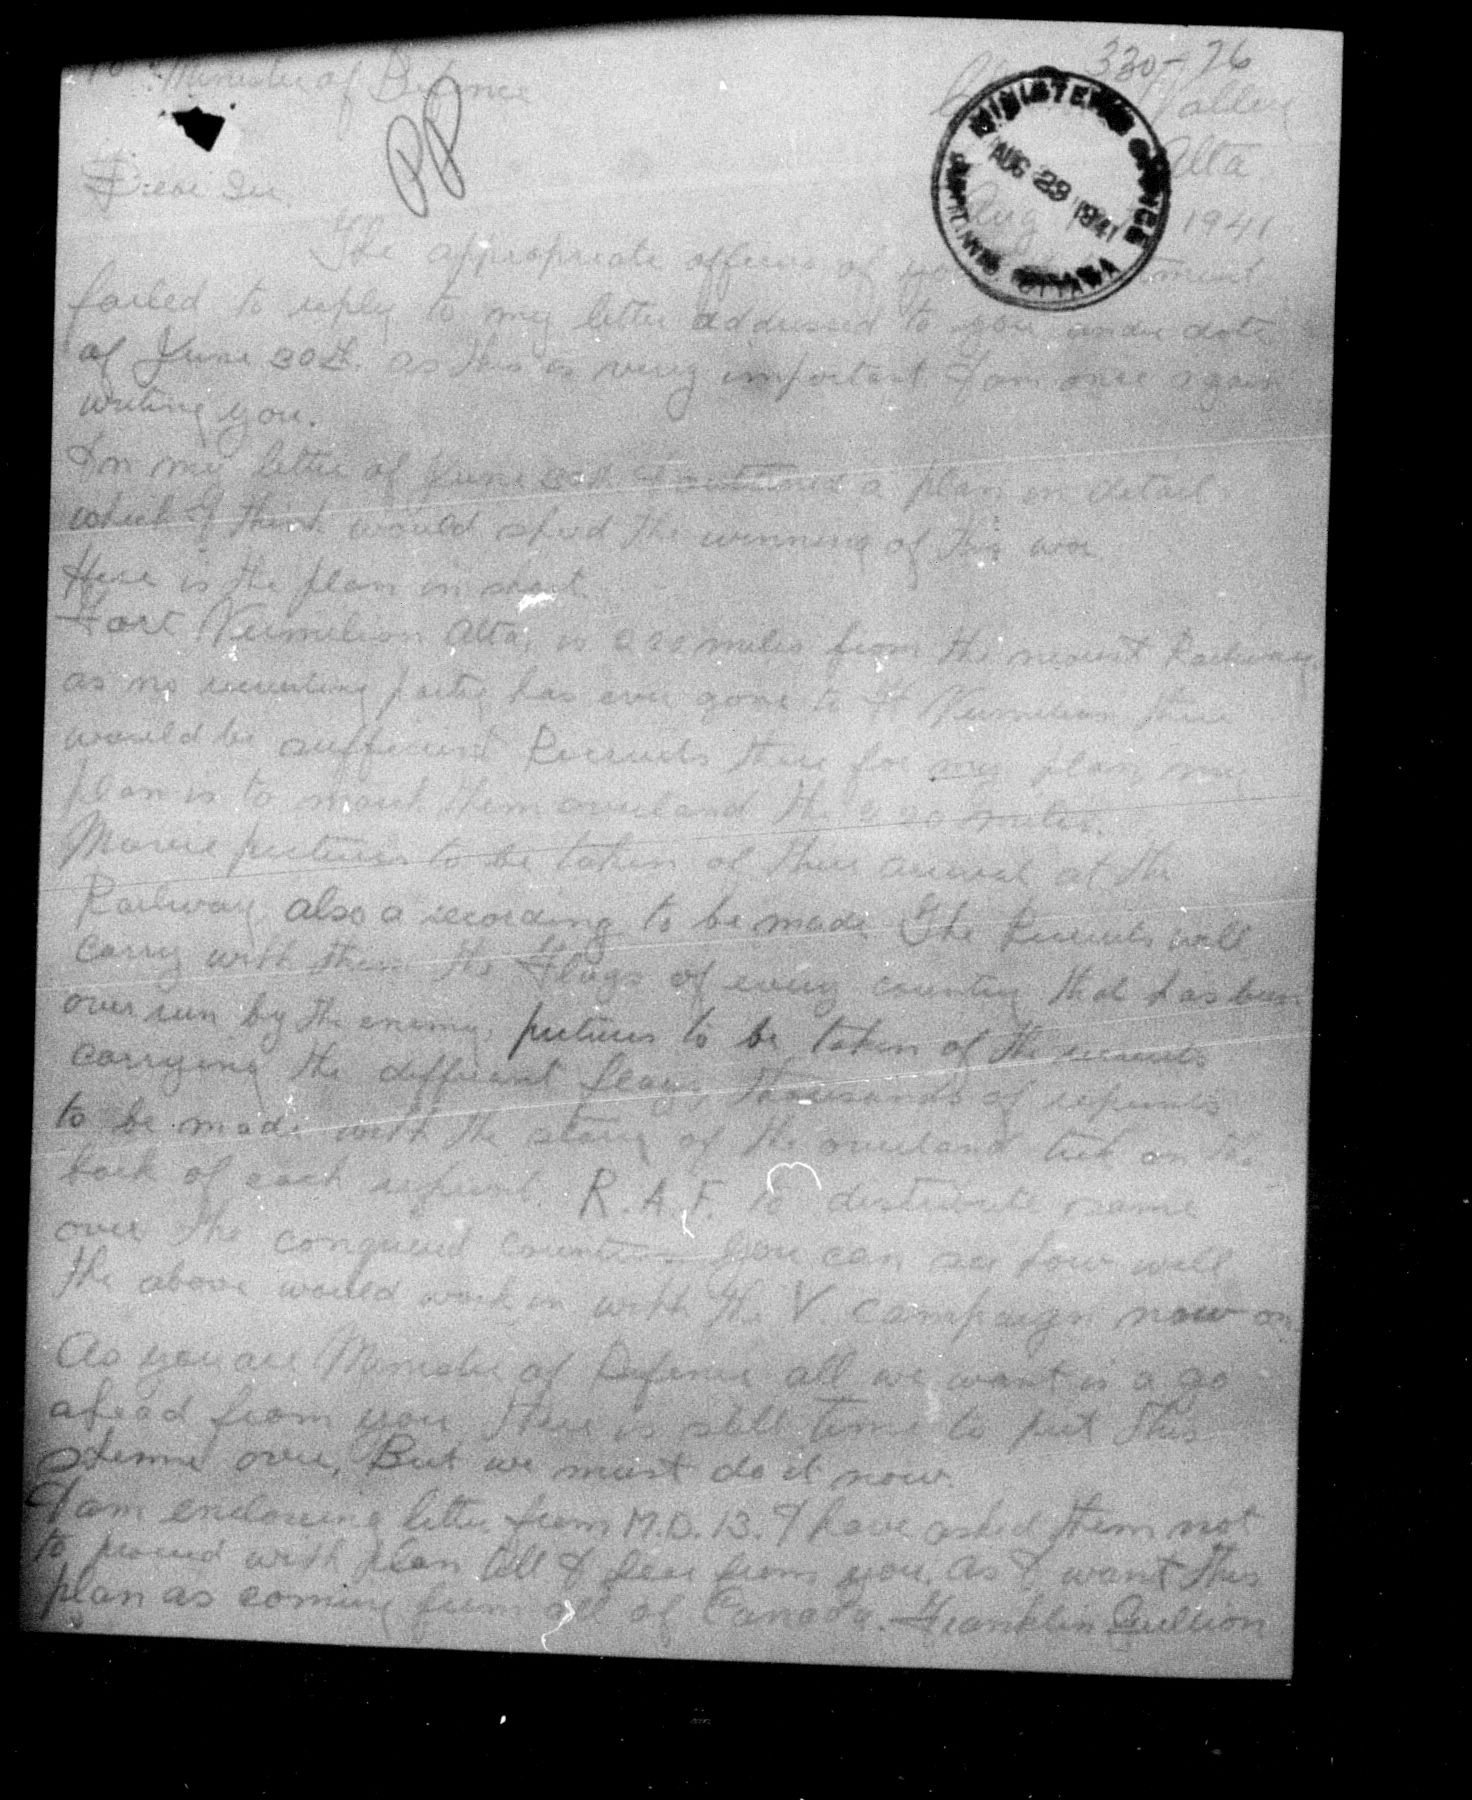 330-76
Minister of Defence
Valley
Alta
MINISTER'S OFFICE
AUG 29 1941
OTTAWA
PP
Dear Sir
Aug 1941
The appropriate officers of your Department
failed to reply to my letter addressed to you under date
of June 30th. as this is very important I am once again
writing you.
In my letter of June 30th I outlined a plan in detail
which I think would speed the winning of this war
Here is the plan in short.
Fort Vermilion Alta, is 220 miles from the nearest Railway,
as no recruiting party has ever gone to Ft Vermilion there
would be sufficient Recruits there for my plan, my
plan is to march them overland the 220 miles.
Movie pictures to be taken of their arrival at the
Railway, also a recording to be made. The Recruits will
carry with them the Flags of every country that has been
over run by the enemy, pictures to be taken of the recruits
carrying the different flags, thousands of reprints
to be made with the story of the overland trek on the
back of each reprint. R.A.F. to distribute same
over the conquered countries. You can see how well
the above would work in with the V. campaign now on
As you are Minister of Defence all we want is a go
ahead from you, there is still time to put this
scheme over, But we must do it now.
I am enclosing letter from M.D. 13. I have asked them not
to proceed with plan till I hear from you, as I want this
plan as coming from all of Canada. Franklin Gullion